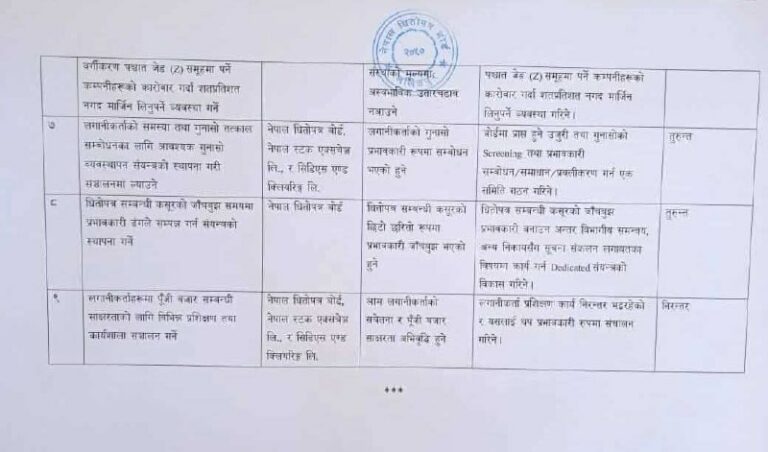 नेपाल धितोपत्र बोर्ड
२०५०
वर्गीकरण पश्चात जेड (Z) समूहमा पर्ने
कम्पनीहरूको कारोबार गर्दा शतप्रतिशत
नगद मार्जिन लिनुपर्ने व्यवस्था गर्ने
संस्थाको मूल्यमा
अस्वभाविक उतारचढाव
नआउने
पश्चात जेड (Z) समूहमा पर्ने कम्पनीहरूको
कारोबार गर्दा शतप्रतिशत नगद मार्जिन
लिनुपर्ने व्यवस्था गरिने।
७
लगानीकर्ताको समस्या तथा गुनासो तत्काल
सम्बोधनका लागि आवश्यक गुनासो
व्यवस्थापन संयन्त्रको स्थापना गरी
सञ्चालनमा ल्याउने
नेपाल धितोपत्र बोर्ड,
नेपाल स्टक एक्सचेञ्ज
लि., र सिडिएस एण्ड
क्लियरिङ्ग लि.
लगानीकर्ताको गुनासो
प्रभावकारी रूपमा सम्बोधन
भएको हुने
बोर्डमा प्राप्त हुने उजुरी तथा गुनासोको
Screening तथा प्रभावकारी
सम्बोधन/समाधान/प्रबलीकरण गर्न एक
समिति गठन गरिने।
तुरुन्त
८
धितोपत्र सम्बन्धी कसूरको जाँचबुझ समयमा
प्रभावकारी ढंगले सम्पन्न गर्न संयन्त्रको
स्थापना गर्ने
नेपाल धितोपत्र बोर्ड
धितोपत्र सम्बन्धी कसूरको
छिटो छरितो रूपमा
प्रभावकारी जाँचबुझ भएको
हुने
धितोपत्र सम्बन्धी कसूरको जाँचबुझ
प्रभावकारी बनाउन अन्तर विभागीय समन्वय,
अन्य निकायसँग सूचना संकलन लगायतका
विषयमा कार्य गर्न Dedicated संयन्त्रको
विकास गरिने।
तुरुन्त
९
लगानीकर्ताहरूमा पूँजी बजार सम्बन्धी
साक्षरताको लागि विभिन्न प्रशिक्षण तथा
कार्यशाला सञ्चालन गर्ने
नेपाल धितोपत्र बोर्ड,
नेपाल स्टक एक्सचेञ्ज
लि., र सिडिएस एण्ड
क्लियरिङ्ग लि.
आम लगानीकर्ताको
सचेतना र पूँजी बजार
साक्षरता अभिवृद्धि हुने
लगानीकर्ता प्रशिक्षण कार्य निरन्तर भइरहेको
र यसलाई थप प्रभावकारी रूपमा संचालन
गरिने।
निरन्तर
***